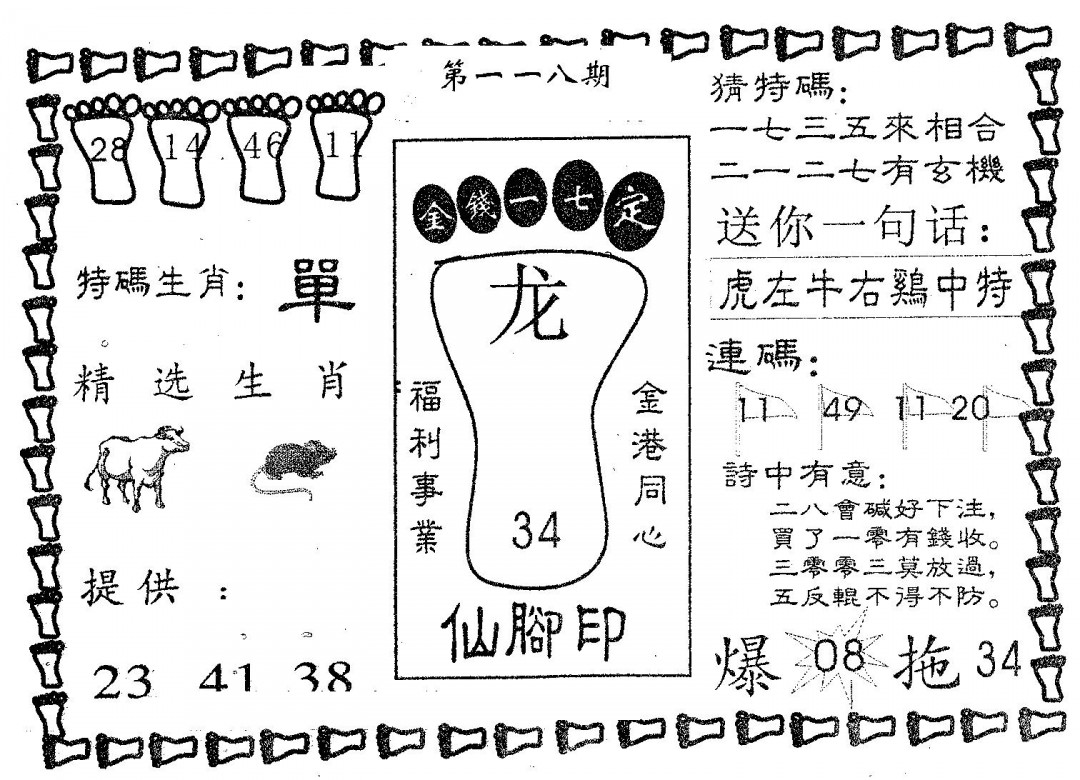 第一一八期
28 14 46 11
特碼生肖：單
精选生肖
提供：
23 41 38
金錢一七定
龙
福利事業
金港同心
34
仙腳印
猜特碼：
一七三五來相合
二一二七有玄機
送你一句话：
虎左牛右鷄中特
連碼：
11 49 11 20
詩中有意：
二八會碱好下注，
買了一零有錢收。
三零零三莫放過，
五反輥不得不防。
爆 08 拖 34